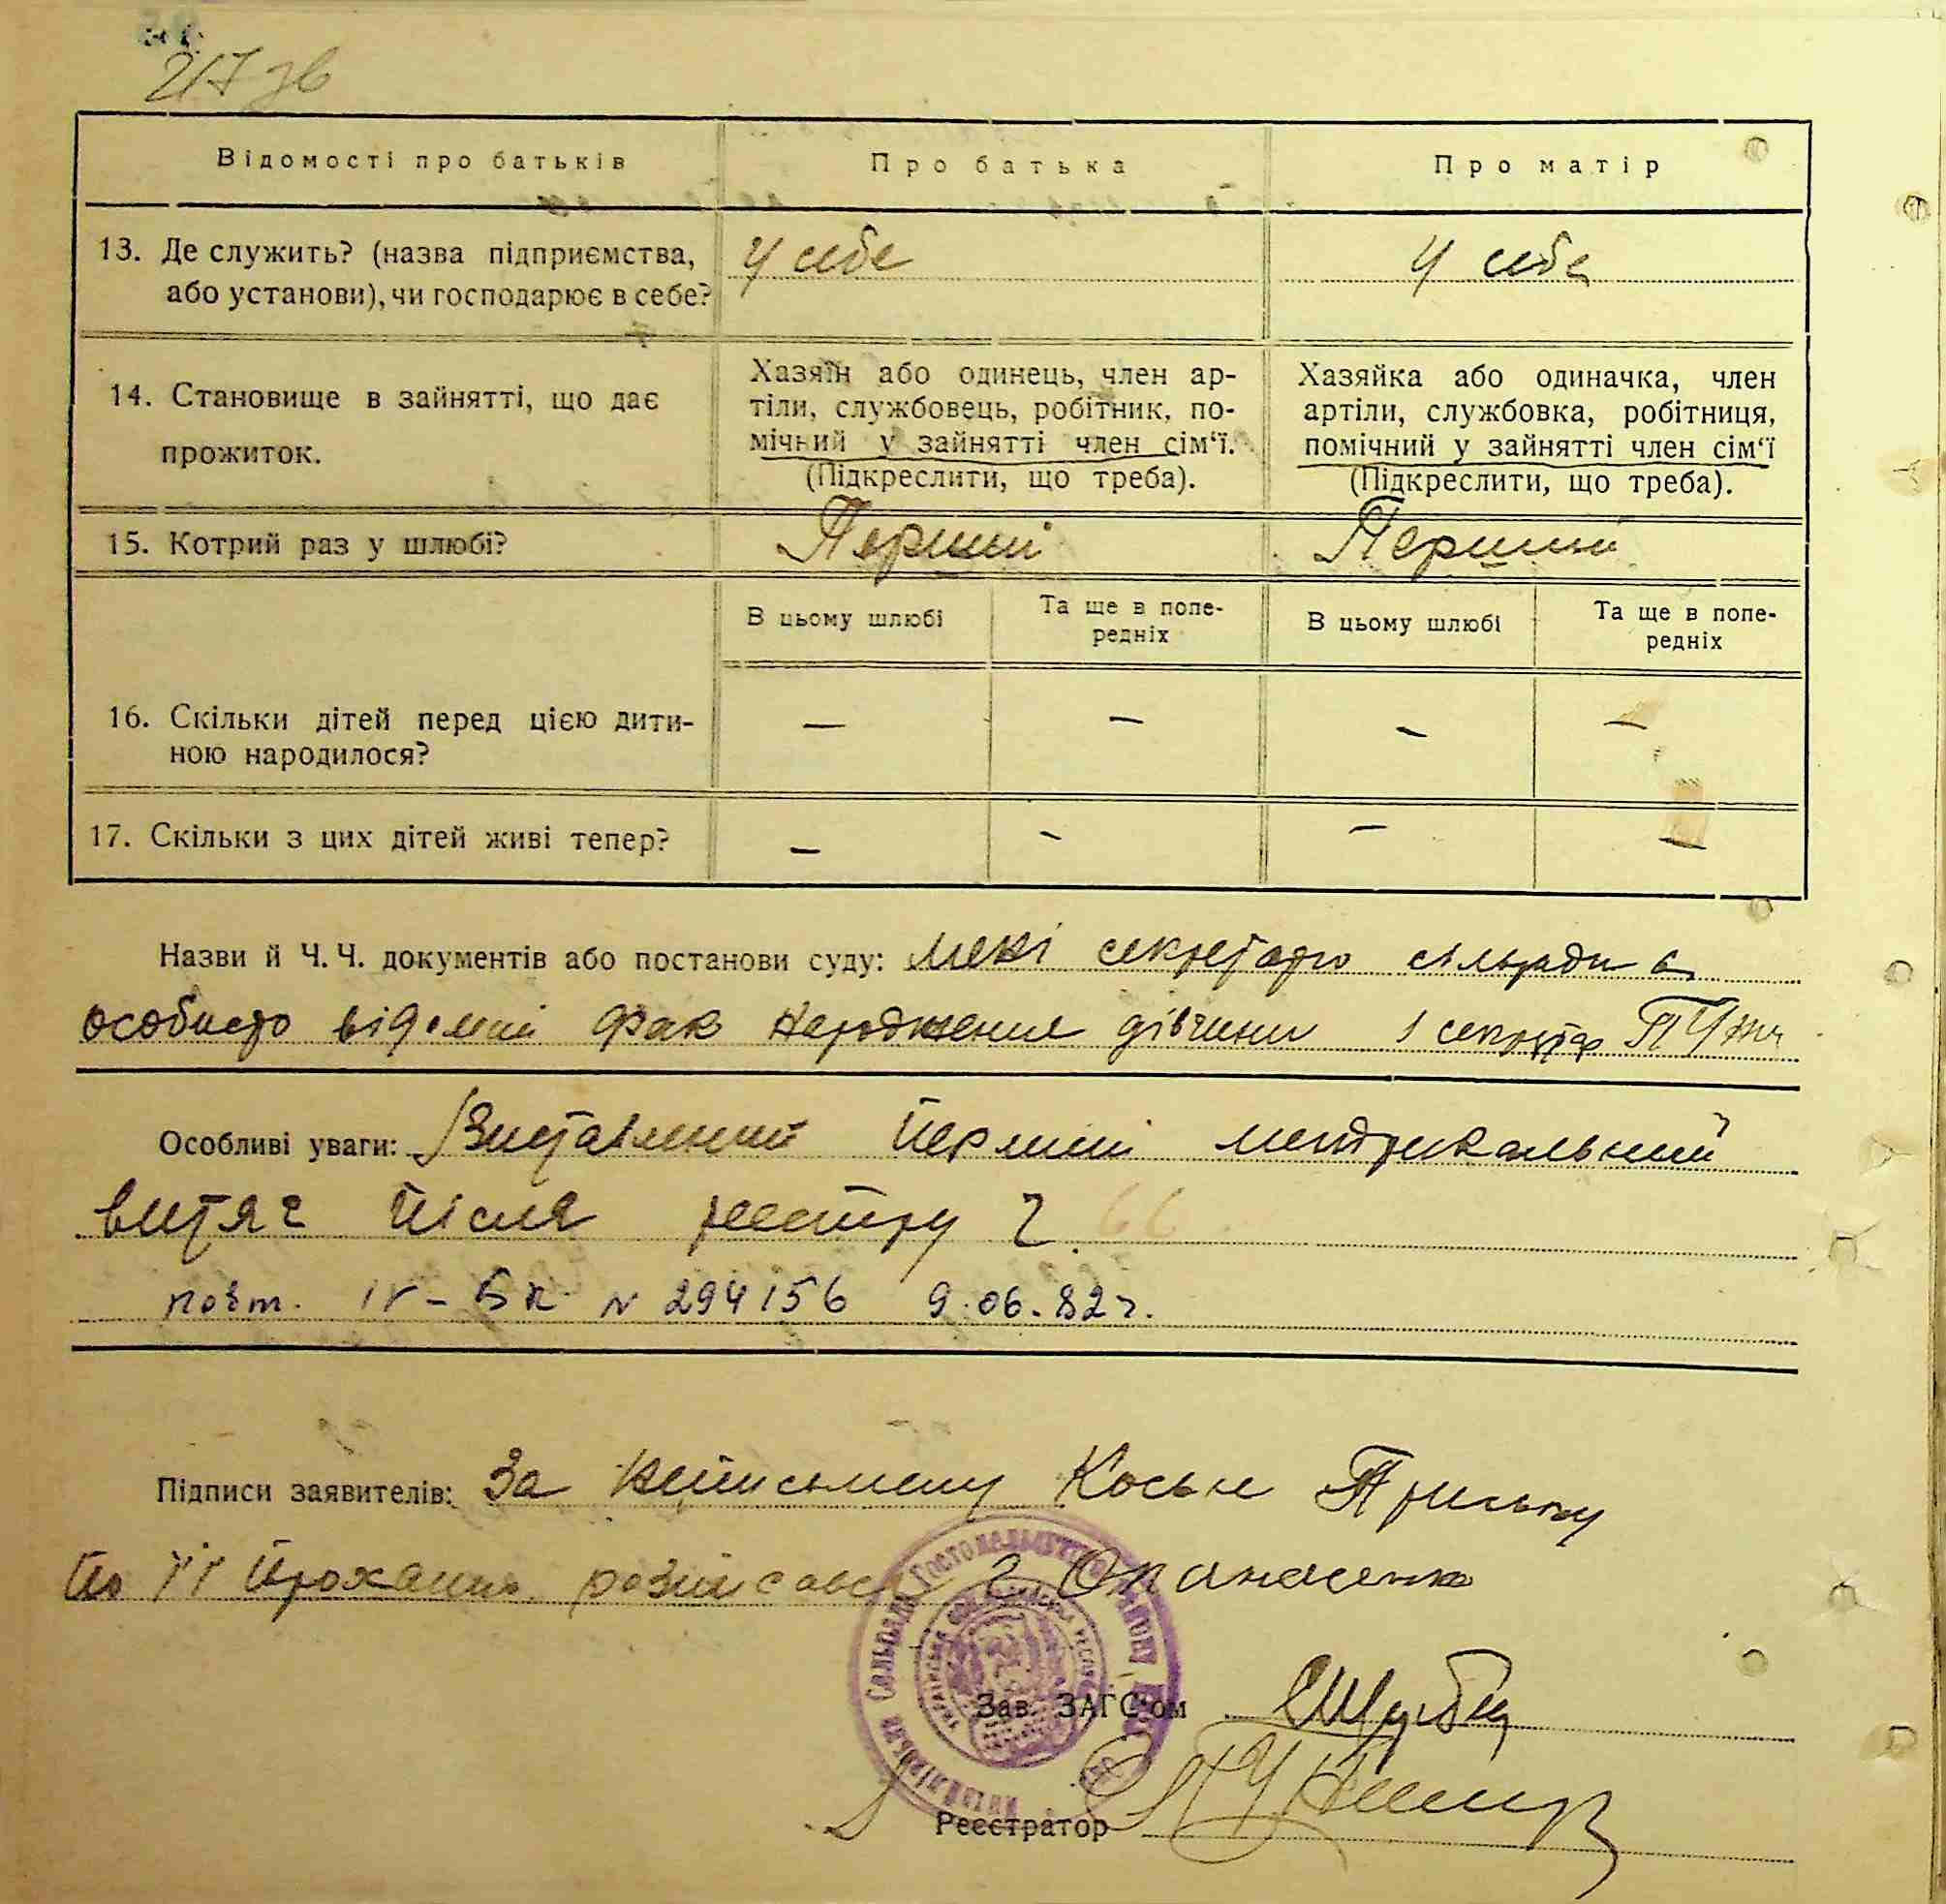 217 зв
Відомості про батьків
Про батька
Про матір
13. Де служить? (назва підприємства,
або установи), чи господарює в себе?
У себе
У себе
14. Становище в зайнятті, що дає
прожиток.
Хазяїн або одинець, член ар-
тіли, службовець, робітник, по-
мічний у зайнятті член сім‘ї.
(Підкреслити, що треба).
Хазяйка або одиначка, член
артіли, службовка, робітниця,
помічний у зайнятті член сім‘ї
(Підкреслити, що треба).
15. Котрий раз у шлюбі?
Перший
Перший
В цьому шлюбі
Та ще в попе-
редніх
В цьому шлюбі
Та ще в попе-
редніх
16. Скільки дітей перед цією дити-
ною народилося?
— — — —
17. Скільки з цих дітей живі тепер?
— — — —
Назви й Ч. Ч. документів або постанови суду: мені секретарю сільради
особисто відомий фак народження дівчини секретар
Особливі уваги: Виставлений перший метрикальний
витяг після реєстру ч. 66
повт. IV-БК № 294156 9.06.82г.
Підписи заявителів: За неписьмену Косьн Приську
по її проханню розписався Опанасенко
Зав. ЗАГС‘ом
Реєстратор